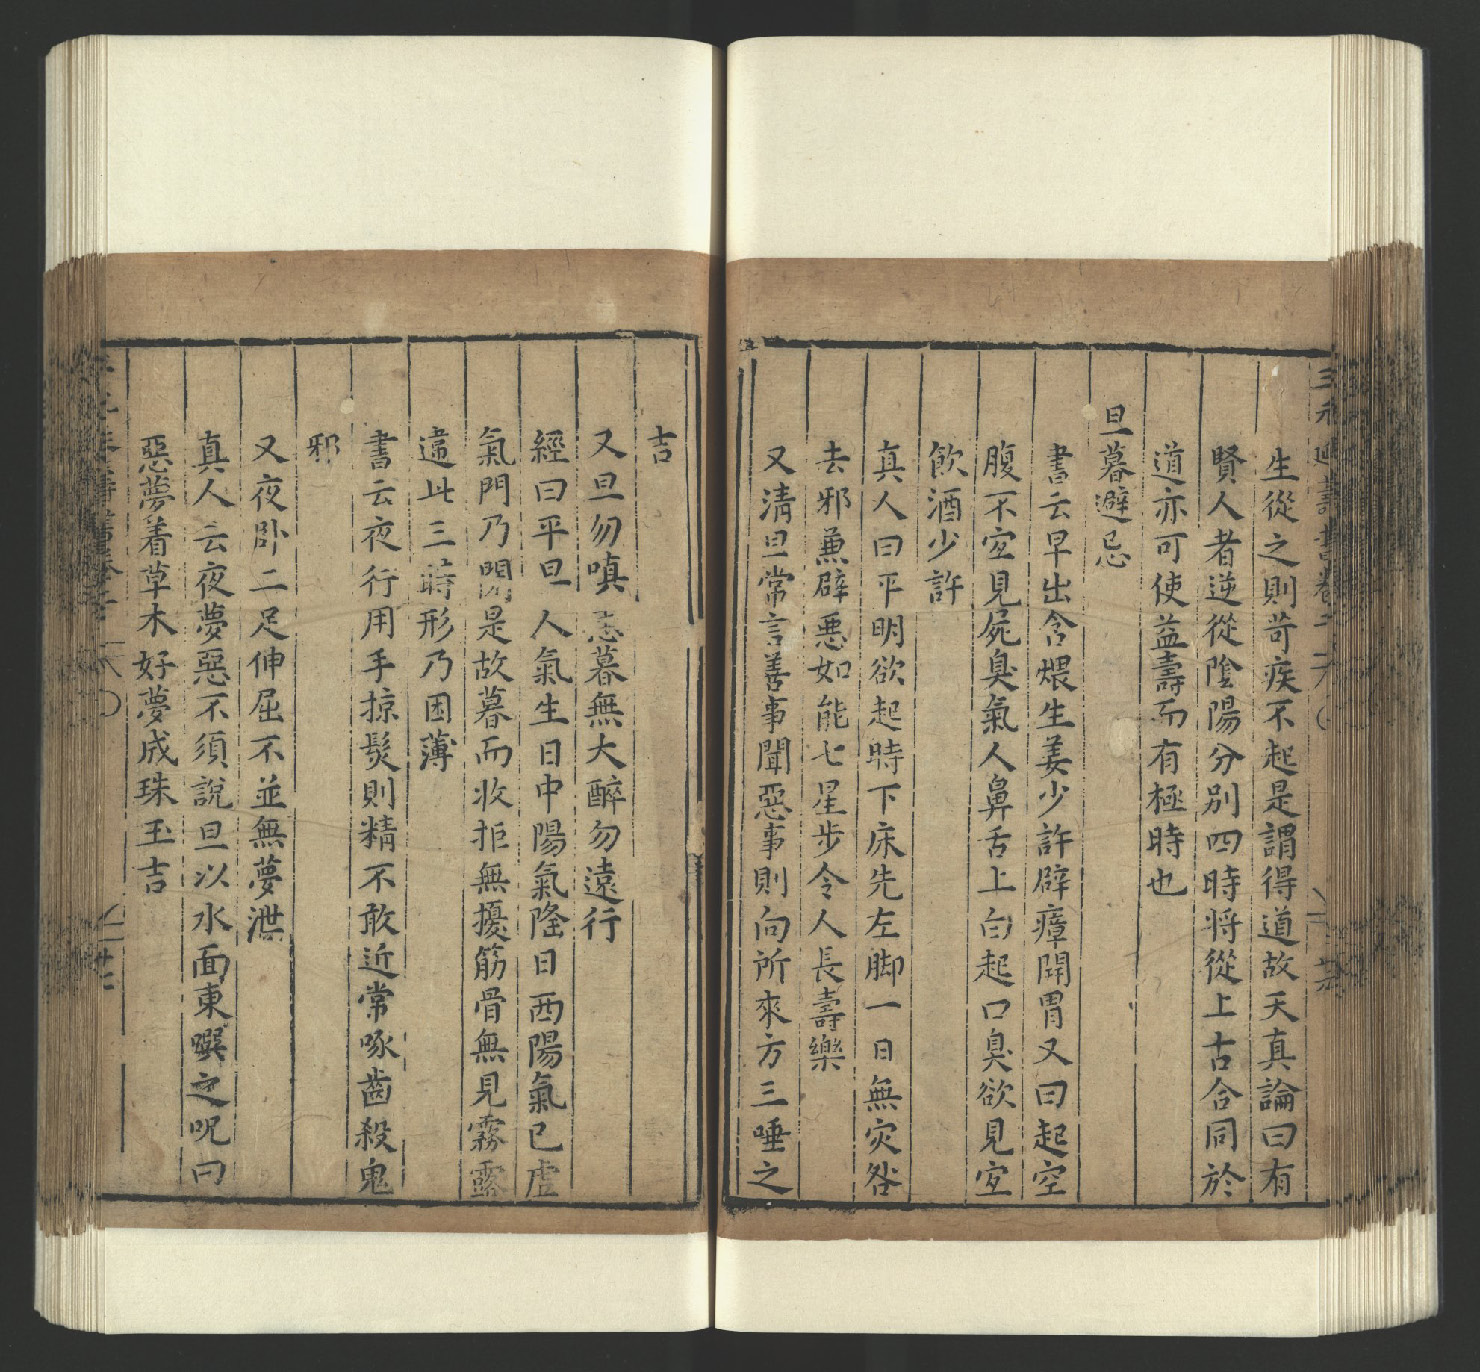 生從之則苛疾不起是謂得道故天真論曰有
賢人者逆從陰陽分別四時將從上古合同於
道亦可使益壽而有極時也
旦暮避忌
書云早出含煨生姜少許辟瘴開胃又曰起空
腹不宜見屍臭氣人鼻舌上白起口臭欲見宜
飲酒少許
真人曰平明欲起時下床先左脚一日無灾咎
去邪兼辟惡如能七星步令人長壽樂
又清旦常言善事聞惡事則向所來方三唾之
吉
又旦勿嗔恚暮無大醉勿遠行
經曰平旦人氣生日中陽氣隆日西陽氣已虛
氣門乃閉是故暮而收拒無擾筋骨無見霧露
違此三時形乃困薄
書云夜行用手掠髮則精不敢近常啄齒殺鬼
邪
又夜卧二足伸屈不並無夢泄
真人云夜夢惡不須說旦以水面東噀之呪曰
惡夢着草木好夢成珠玉吉